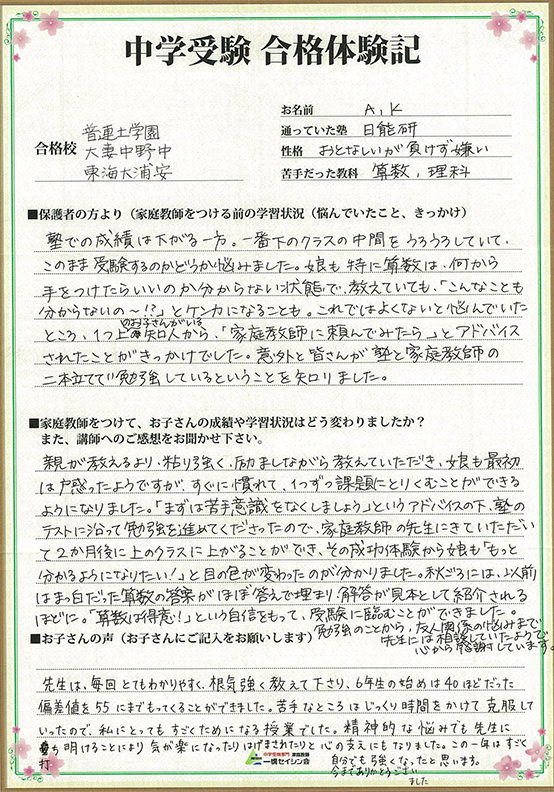 中学受験 合格体験記
お名前 A.K
通っていた塾 日能研
合格校 普連土学園
大妻中野中
東海大浦安
性格 おとなしいが負けず嫌い
苦手だった教科 算数, 理科
■保護者の方より（家庭教師をつける前の学習状況（悩んでいたこと、きっかけ）
塾での成績は下がる一方。一番下のクラスの中間をうろうろしていて、
このまま受験するのかどうか悩みました。娘も特に算数は、何から
手をつけたらいいのか分からない状態で、教えていても、「こんなことも
分からないの〜!!?」とケンカになることも。これではよくないと悩んでいた
ところ、1つ上のお子さんがいる知人から、「家庭教師に頼んでみたら」とアドバイス
されたことがきっかけでした。意外と皆さんが塾と家庭教師の
二本立てで勉強しているということを知りました。
■家庭教師をつけて、お子さんの成績や学習状況はどう変わりましたか？
また、講師へのご感想をお聞かせ下さい。
親が教えるより、粘り強く、励ましながら教えていただき、娘も最初
は戸惑ったようですが、すぐに慣れて、1つずつ課題にとりくむことができる
ようになりました。「まずは苦手意識をなくしましょう」というアドバイスの下、塾の
テストに沿って勉強を進めてくださったので、家庭教師の先生にきていただい
て2か月後に上のクラスに上がることができ、その成功体験から娘も「もっと
分かるようになりたい!」と目の色が変わったのが分かりました。秋ごろには、以前
はまっ白だった算数の答案がほぼ答えで埋まり、解答が見本として紹介される
ほどに。「算数は得意!」という自信をもって、受験に臨むことができました。
勉強のことから、友人関係の悩みまで
先生には相談していたようで、
心から感謝しています。
■お子さんの声（お子さんにご記入をお願いします）
先生は、毎回とてもわかりやすく、根気強く教えて下さり、6年生の始めは40ほどだった
偏差値を55にまでもってくることができました。苦手なところはじっくり時間をかけて克服して
いったので、私にとってもすごくためになる授業でした。精神的な悩みでも先生に
打ち明けることにより気が楽になったりはげまされたりと心の支えにもなりました。この一年はすごく
自分でも強くなったと思います。
今までありがとうござい
ました
中学受験専門 家庭教師
一橋セイシン会